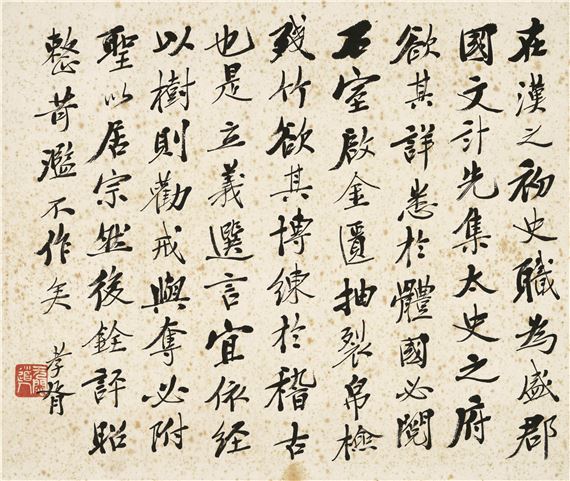 在漢之初史職為盛郡
國文計先集太史之府
欲其詳悉於體國必閱
石室啟金匱抽裂帛檢
殘竹欲其博練於稽古
也是立義選言宜依經
以樹則勸戒與奪必附
聖以居宗然後銓評昭
整苛濫不作矣
孝胥